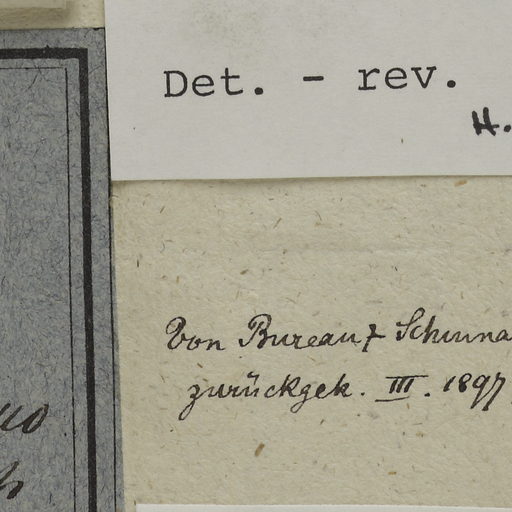 Det. - rev.
H.
Von Bureau + Schuma
zurückgek. III. 1897